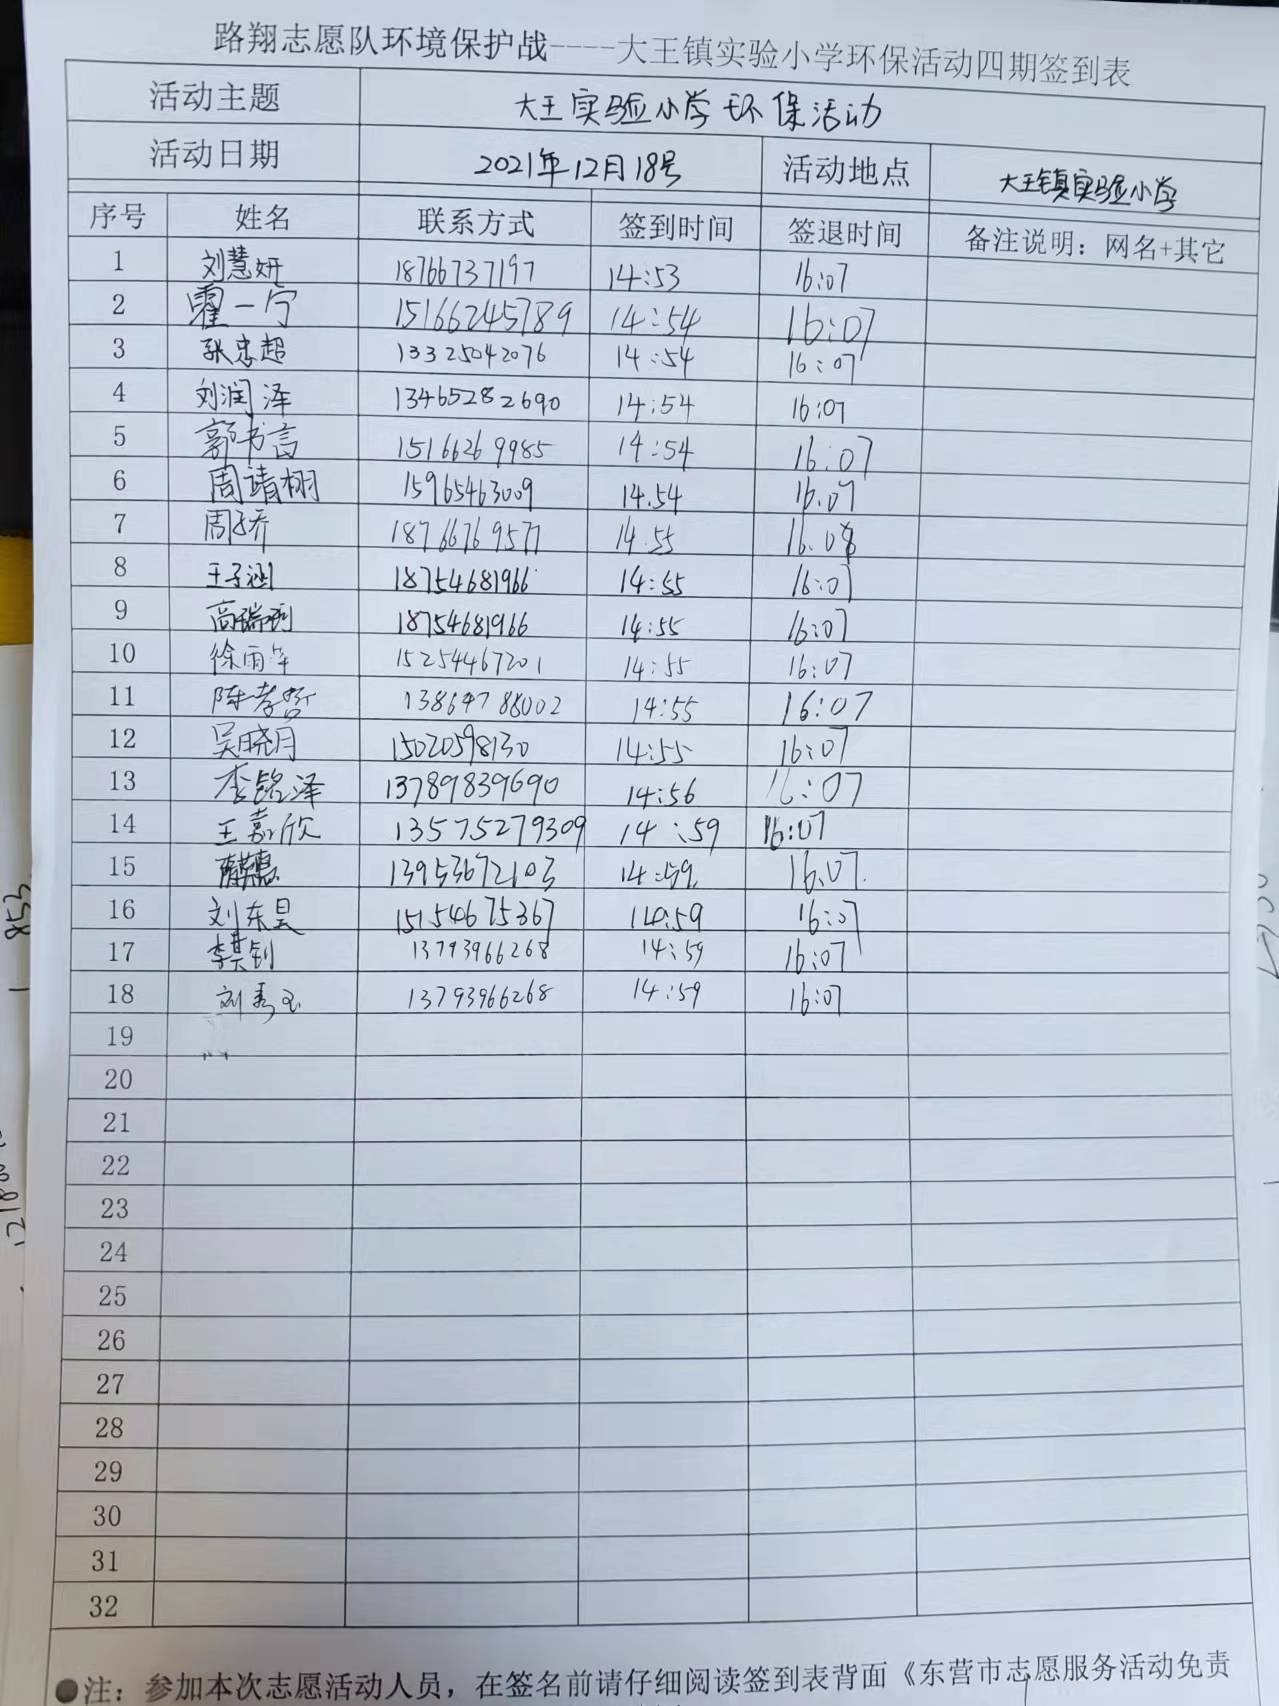 路翔志愿队环境保护战----大王镇实验小学环保活动四期签到表
活动主题 大王实验小学环保活动
活动日期 2021年12月18号 活动地点 大王镇实验小学
序号 姓名 联系方式 签到时间 签退时间 备注说明：网名+其它
1 刘慧妍 18766737197 14:53 16:07
2 霍一宁 15166245789 14:54 16:07
3 张忠超 13325042076 14:54 16:07
4 刘润泽 13465282690 14:54 16:07
5 郭书言 15166269985 14:54 16:07
6 周靖栩 15965463009 14.54 16.07
7 周子乔 18766769577 14.55 16.08
8 王子涵 18754681966 14:55 16:07
9 高瑞 18754681966 14:55 16:07
10 徐雨 15254467201 14:55 16:07
11 陈孝哲 13864788002 14:55 16:07
12 吴晓月 15020598130 14:55 16:07
13 李铭泽 13789839690 14:56 16:07
14 王嘉欣 13575279309 14:59 16:07
15 13953672103 14:59 16.07
16 刘东昊 15154675367 14:59 16:07
17 李其钊 13793966268 14:59 16:07
18 刘秀玉 13793966268 14:59 16:07
19
20
21
22
23
24
25
26
27
28
29
30
31
32
●注：参加本次志愿活动人员，在签名前请仔细阅读签到表背面《东营市志愿服务活动免责